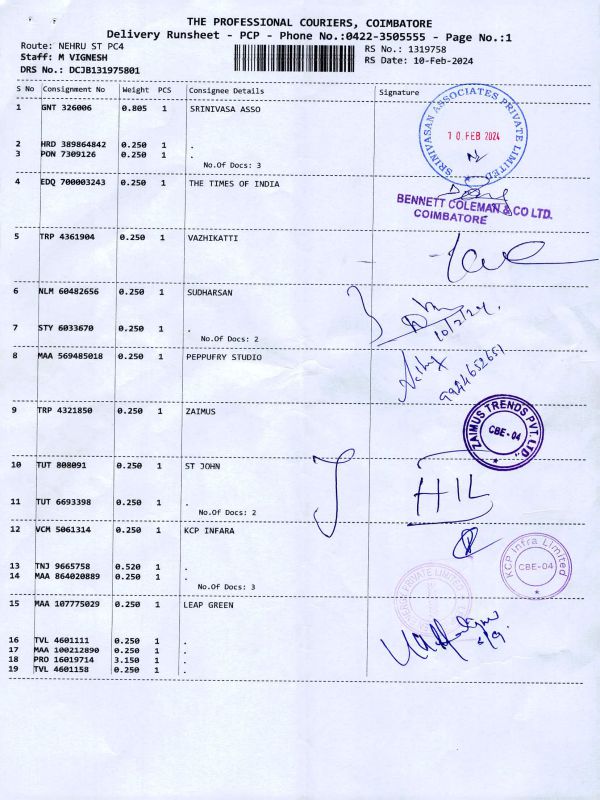 THE PROFESSIONAL COURIERS, COIMBATORE
Delivery Runsheet - PCP - Phone No.:0422-3505555 - Page No.:1
Route: NEHRU ST PC4
Staff: M VIGNESH
DRS No.: DCJB131975801
RS No.: 1319758
RS Date: 10-Feb-2024
S No Consignment No Weight PCS Consignee Details Signature
1 GNT 326006 0.805 1 SRINIVASA ASSO
SRINIVASAN ASSOCIATES PRIVATE LIMITED
10 FEB 2024
2 HRD 389864842 0.250 1 .
3 PON 7309126 0.250 1 .
No.Of Docs: 3
4 EDQ 700003243 0.250 1 THE TIMES OF INDIA
BENNETT COLEMAN & CO LTD.
COIMBATORE
5 TRP 4361904 0.250 1 VAZHIKATTI
6 NLM 60482656 0.250 1 SUDHARSAN
10/2/24
7 STY 6033670 0.250 1 .
No.Of Docs: 2
8 MAA 569485018 0.250 1 PEPPUFRY STUDIO
9944652651
9 TRP 4321850 0.250 1 ZAIMUS
ZAIMUS TRENDS PVT. LTD.,
CBE-04
10 TUT 808091 0.250 1 ST JOHN
HIL
11 TUT 6693398 0.250 1 .
No.Of Docs: 2
12 VCM 5061314 0.250 1 KCP INFARA
KCP Infra Limited
CBE-04
13 TNJ 9665758 0.520 1 .
14 MAA 864020889 0.250 1 .
No.Of Docs: 3
15 MAA 107775029 0.250 1 LEAP GREEN
PRIVATE LIMITED
16 TVL 4601111 0.250 1 .
17 MAA 100212890 0.250 1 .
18 PRO 16019714 3.150 1 .
19 TVL 4601158 0.250 1 .